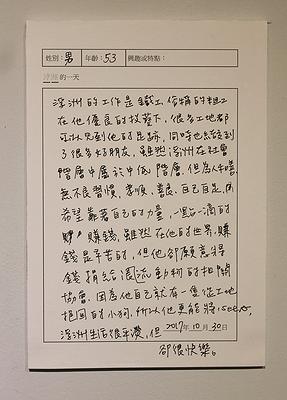 性別：男 年齡：53 興趣或特點：
浮洲的一天
浮洲的工作是鐵工，俗稱的粗工
在他優良的技藝下，很多工地都
可以見到他的足跡，同時也結交到
了很多好朋友，雖然浮洲在社會
階層中屬於中低階層，但為人和善，
無不良習慣，孝順，善良，自己自足，
希望靠著自己的力量，一點一滴的
賺錢，雖然在他的世界，賺
錢是辛苦的，但他卻願意將
錢捐給流浪動物的相關
協會，因為他自己就有一隻從工地
抱回的小狗，所以他更能將
浮洲生活很平凡，但
2017年10月30日
卻很快樂。